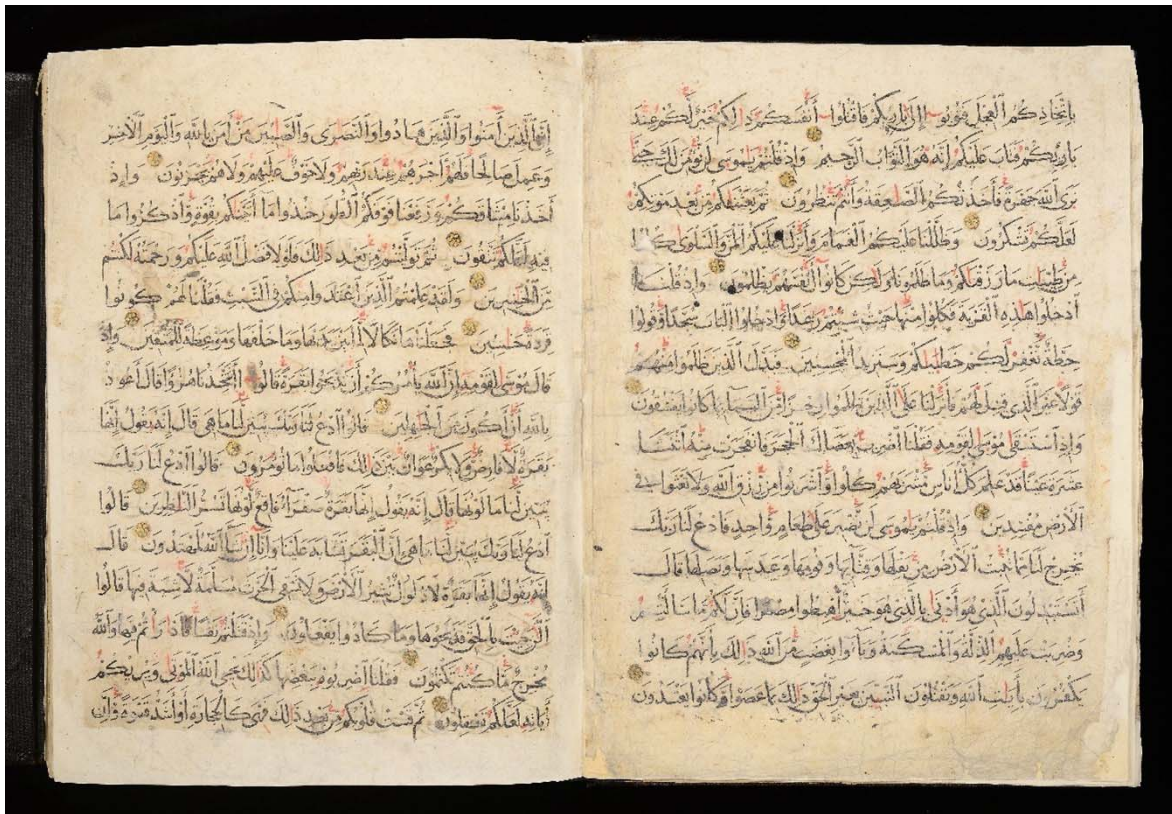 بِاتِّخَاذِكُمُ ٱلْعِجْلَ فَتُوبُوا إِلَىٰ بَارِئِكُمْ فَاقْتُلُوا أَنْفُسَكُمْ ذَالِكُمْ خَيْرٌ لَكُمْ عِنْدَ
بَارِئِكُمْ فَتَابَ عَلَيْكُمْ إِنَّهُ هُوَ ٱلتَّوَّابُ ٱلرَّحِيمُ وَإِذْ قُلْتُمْ يٰمُوسَى لَنْ نُؤْمِنَ لَكَ حَتَّى
نَرَى ٱللَّهَ جَهْرَةً فَأَخَذَتْكُمُ ٱلصَّاعِقَةُ وَأَنْتُمْ تَنْظُرُونَ ثُمَّ بَعَثْنَاكُمْ مِنْ بَعْدِ مَوْتِكُمْ
لَعَلَّكُمْ تَشْكُرُونَ وَظَلَّلْنَا عَلَيْكُمُ ٱلْغَمَامَ وَأَنْزَلْنَا عَلَيْكُمُ ٱلْمَنَّ وَٱلسَّلْوَى كُلُوا
مِنْ طَيِّبَاتِ مَا رَزَقْنَاكُمْ وَمَا ظَلَمُونَا وَلَكِنْ كَانُوا أَنْفُسَهُمْ يَظْلِمُونَ وَإِذْ قُلْنَا
ٱدْخُلُوا هَٰذِهِ ٱلْقَرْيَةَ فَكُلُوا مِنْهَا حَيْثُ شِئْتُمْ رَغَدًا وَٱدْخُلُوا ٱلْبَابَ سُجَّدًا وَقُولُوا
حِطَّةٌ نَغْفِرْ لَكُمْ خَطَايَاكُمْ وَسَنَزِيدُ ٱلْمُحْسِنِينَ فَبَدَّلَ ٱلَّذِينَ ظَلَمُوا مِنْهُمْ
قَوْلًا غَيْرَ ٱلَّذِي قِيلَ لَهُمْ فَأَنْزَلْنَا عَلَى ٱلَّذِينَ ظَلَمُوا رِجْزًا مِنَ ٱلسَّمَاءِ بِمَا كَانُوا يَفْسُقُونَ
وَإِذِ ٱسْتَسْقَى مُوسَى لِقَوْمِهِ فَقُلْنَا ٱضْرِبْ بِعَصَاكَ ٱلْحَجَرَ فَانْفَجَرَتْ مِنْهُ ٱثْنَتَا
عَشْرَةَ عَيْنًا قَدْ عَلِمَ كُلُّ أُنَاسٍ مَشْرَبَهُمْ كُلُوا وَٱشْرَبُوا مِنْ رِزْقِ ٱللَّهِ وَلَا تَعْثَوْا فِي
ٱلْأَرْضِ مُفْسِدِينَ وَإِذْ قُلْتُمْ يٰمُوسَى لَنْ نَصْبِرَ عَلَى طَعَامٍ وَاحِدٍ فَادْعُ لَنَا رَبَّكَ
يُخْرِجْ لَنَا مِمَّا تُنْبِتُ ٱلْأَرْضُ مِنْ بَقْلِهَا وَقِثَّائِهَا وَفُومِهَا وَعَدَسِهَا وَبَصَلِهَا قَالَ
أَتَسْتَبْدِلُونَ ٱلَّذِي هُوَ أَدْنَى بِالَّذِي هُوَ خَيْرٌ ٱهْبِطُوا مِصْرًا فَإِنَّ لَكُمْ مَا سَأَلْتُمْ
وَضُرِبَتْ عَلَيْهِمُ ٱلذِّلَّةُ وَٱلْمَسْكَنَةُ وَبَاءُوا بِغَضَبٍ مِنَ ٱللَّهِ ذَالِكَ بِأَنَّهُمْ كَانُوا
يَكْفُرُونَ بِآيَاتِ ٱللَّهِ وَيَقْتُلُونَ ٱلنَّبِيِّينَ بِغَيْرِ ٱلْحَقِّ ذَالِكَ بِمَا عَصَوْا وَكَانُوا يَعْتَدُونَ
إِنَّ ٱلَّذِينَ آمَنُوا وَٱلَّذِينَ هَادُوا وَٱلنَّصَارَى وَٱلصَّابِئِينَ مَنْ آمَنَ بِاللَّهِ وَٱلْيَوْمِ ٱلْآخِرِ
وَعَمِلَ صَالِحًا فَلَهُمْ أَجْرُهُمْ عِنْدَ رَبِّهِمْ وَلَا خَوْفٌ عَلَيْهِمْ وَلَا هُمْ يَحْزَنُونَ وَإِذْ
أَخَذْنَا مِيثَاقَكُمْ وَرَفَعْنَا فَوْقَكُمُ ٱلطُّورَ خُذُوا مَا آتَيْنَاكُمْ بِقُوَّةٍ وَٱذْكُرُوا مَا
فِيهِ لَعَلَّكُمْ تَتَّقُونَ ثُمَّ تَوَلَّيْتُمْ مِنْ بَعْدِ ذَالِكَ فَلَوْلَا فَضْلُ ٱللَّهِ عَلَيْكُمْ وَرَحْمَتُهُ لَكُنْتُمْ
مِنَ ٱلْخَاسِرِينَ وَلَقَدْ عَلِمْتُمُ ٱلَّذِينَ ٱعْتَدَوْا مِنْكُمْ فِي ٱلسَّبْتِ فَقُلْنَا لَهُمْ كُونُوا
قِرَدَةً خَاسِئِينَ فَجَعَلْنَاهَا نَكَالًا لِمَا بَيْنَ يَدَيْهَا وَمَا خَلْفَهَا وَمَوْعِظَةً لِلْمُتَّقِينَ وَإِذْ
قَالَ مُوسَى لِقَوْمِهِ إِنَّ ٱللَّهَ يَأْمُرُكُمْ أَنْ تَذْبَحُوا بَقَرَةً قَالُوا أَتَتَّخِذُنَا هُزُوًا قَالَ أَعُوذُ
بِاللَّهِ أَنْ أَكُونَ مِنَ ٱلْجَاهِلِينَ قَالُوا ٱدْعُ لَنَا رَبَّكَ يُبَيِّنْ لَنَا مَا هِيَ قَالَ إِنَّهُ يَقُولُ إِنَّهَا
بَقَرَةٌ لَا فَارِضٌ وَلَا بِكْرٌ عَوَانٌ بَيْنَ ذَالِكَ فَافْعَلُوا مَا تُؤْمَرُونَ قَالُوا ٱدْعُ لَنَا رَبَّكَ
يُبَيِّنْ لَنَا مَا لَوْنُهَا قَالَ إِنَّهُ يَقُولُ إِنَّهَا بَقَرَةٌ صَفْرَاءُ فَاقِعٌ لَوْنُهَا تَسُرُّ ٱلنَّاظِرِينَ قَالُوا
ٱدْعُ لَنَا رَبَّكَ يُبَيِّنْ لَنَا مَا هِيَ إِنَّ ٱلْبَقَرَ تَشَابَهَ عَلَيْنَا وَإِنَّا إِنْ شَاءَ ٱللَّهُ لَمُهْتَدُونَ قَالَ
إِنَّهُ يَقُولُ إِنَّهَا بَقَرَةٌ لَا ذَلُولٌ تُثِيرُ ٱلْأَرْضَ وَلَا تَسْقِي ٱلْحَرْثَ مُسَلَّمَةٌ لَا شِيَةَ فِيهَا قَالُوا
ٱلْآنَ جِئْتَ بِالْحَقِّ فَذَبَحُوهَا وَمَا كَادُوا يَفْعَلُونَ وَإِذْ قَتَلْتُمْ نَفْسًا فَادَّارَأْتُمْ فِيهَا وَٱللَّهُ
مُخْرِجٌ مَا كُنْتُمْ تَكْتُمُونَ فَقُلْنَا ٱضْرِبُوهُ بِبَعْضِهَا كَذَالِكَ يُحْيِي ٱللَّهُ ٱلْمَوْتَى وَيُرِيكُمْ
آيَاتِهِ لَعَلَّكُمْ تَعْقِلُونَ ثُمَّ قَسَتْ قُلُوبُكُمْ مِنْ بَعْدِ ذَالِكَ فَهِيَ كَالْحِجَارَةِ أَوْ أَشَدُّ قَسْوَةً وَإِنَّ